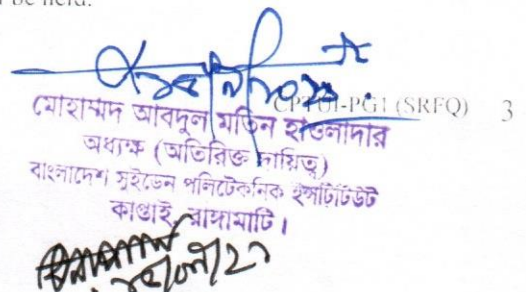 be held.
CPTUI-PG1 (SRFQ) 3
মোহাম্মদ আবদুল মতিন হাওলাদার
অধ্যক্ষ (অতিরিক্ত দায়িত্ব)
বাংলাদেশ সুইডেন পলিটেকনিক ইন্সটিটিউট
কাপ্তাই, রাঙ্গামাটি।